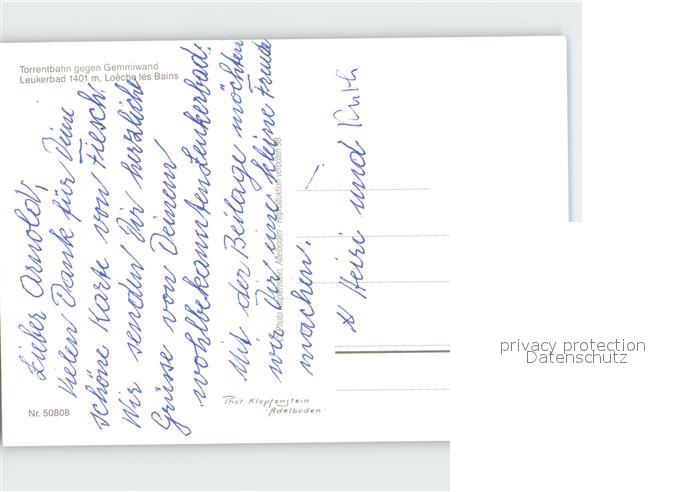 Torrentbahn gegen Gemmiwand
Leukerbad 1401 m, Loèche les Bains
Lieber Arnold,
Vielen Dank für Deine
schöne Karte von Fiesch.
Wir senden Dir herzliche
Grüsse von Deinem
wohlbekannten Leukerbad.
Mit der Beilage möchten
wir Dir eine kleine Freude
machen.
Heiri und Ruth
Photo Klopfenstein, Adelboden
Nr. 50808
Phot Klopfenstein
Adelboden
privacy protection
Datenschutz